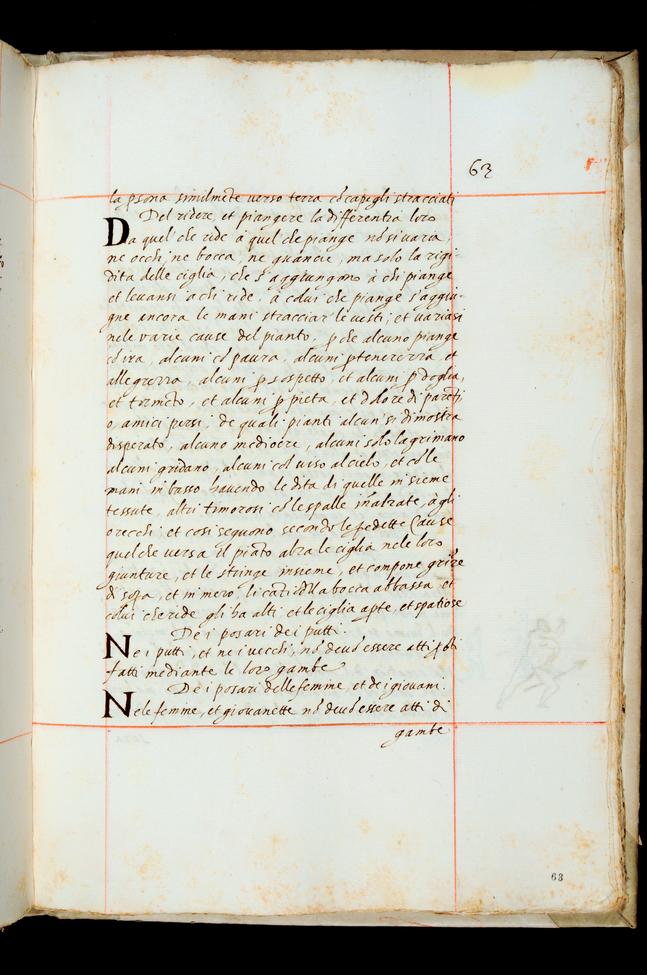 63
la psona similmẽte verso terra cõ capegli stracciati
Del ridere, et piangere la differentia loro
Da quel che ride à quel che piange nõ si varia,
ne occhi, ne bocca, ne guancie, ma solo la rigi-
dita delle ciglia, che s'aggiungano à chi piange
et levansi à chi ride. à colui che piange s'aggiu-
gne ancora le mani stracciar le vesti, et variasi
nele varie cause del pianto. p che alcuno piange
cõ ira, alcuni cõ paura, alcuni p tenerezza, et
allegrezza, alcuni p sospetto, et alcuni p doglia,
et tormẽto, et alcuni p pieta, et dolore di parẽti
o, amici persi; de quali pianti alcun si dimostra
disperato, alcuno mediocre, alcuni solo lagrimano
alcuni gridano, alcuni col viso al cielo, et cõ le
mani in basso havendo le dita di quelle insieme
tessute, altri timorosi cõ le spalle inalzate, à gli
orecchi, et cosi seguono secondo le pedette Cause
quel che versa il piãto alza le ciglia nele loro
giunture, et le stringe insieme, et compone grinze
di sopra, et in mezo. li cãti dlla bocca abbassa, et
colui che ride gli ha alti et le ciglia apte, et spatiose
De i posari de i putti.
Ne i putti, et ne i vecchi, nõ devõ essere atti põti
fatti mediante le loro gambe
De i posari delle femine, et de i giovani.
Nele femine, et giovanette nõ devõ essere atti di
gambe
63